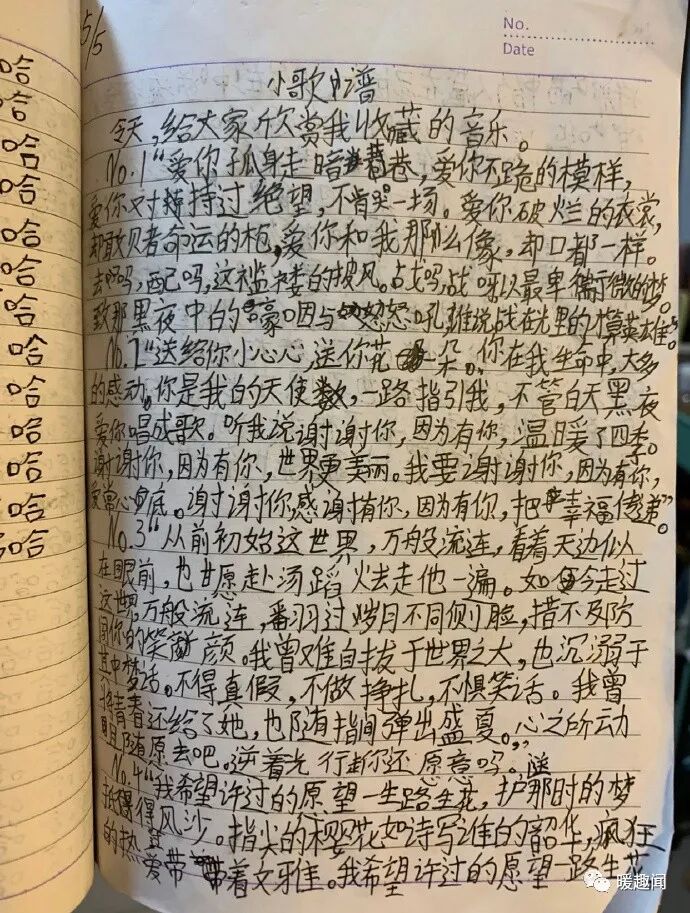 哈
哈
哈
哈
哈
哈
哈
哈
哈
哈
哈
哈
哈
5/5
No.
Date
小歌小谱
今天,给大家欣赏我收藏的音乐。
No.1“爱你孤身走暗巷,爱你不跪的模样,
爱你对峙过绝望,不肯哭一场。爱你破烂的衣裳,
却敢堵命运的枪,爱你和我那么像,却口都一样。
去吗,配吗,这褴褛的披风。战吗,战呀以最卑微的梦。
致那黑夜中的嚎咽与怒吼,谁说战在光里的算英雄”。
No.2“送给你小心心,送你花一朵。你在我生命中,太多
的感动。你是我的天使,一路指引我,不管白天黑夜
爱你唱成歌。听我说谢谢你,因为有你,温暖了四季。
谢谢你,因为有你,世界更美丽。我要谢谢你,因为有你,
爱常心底。谢谢你感谢有你,因为有你,把幸福传递”。
No.3“从前初始这世界,万般流连,看着天边似
在眼前,也甘愿赴汤蹈火去走他一遍。如今走过
这世界,万般流连,翻过岁月不同侧脸,措不及防
闯你的笑颜。我曾难自拔于世界之大,也沉溺于
其中梦话。不得真假,不做挣扎,不惧笑话。我曾
将青春还给了她,也随指间弹出盛夏。心之所动
随愿去吧。逆着光行断你还愿意吗。”
No.4“我希望许过的愿望一生路生花,护那时的梦
抵得风沙。指尖的樱花如诗写谁的韶华,疯狂
的热爱带着文雅。我希望许过的愿望一路生花
暖趣闻